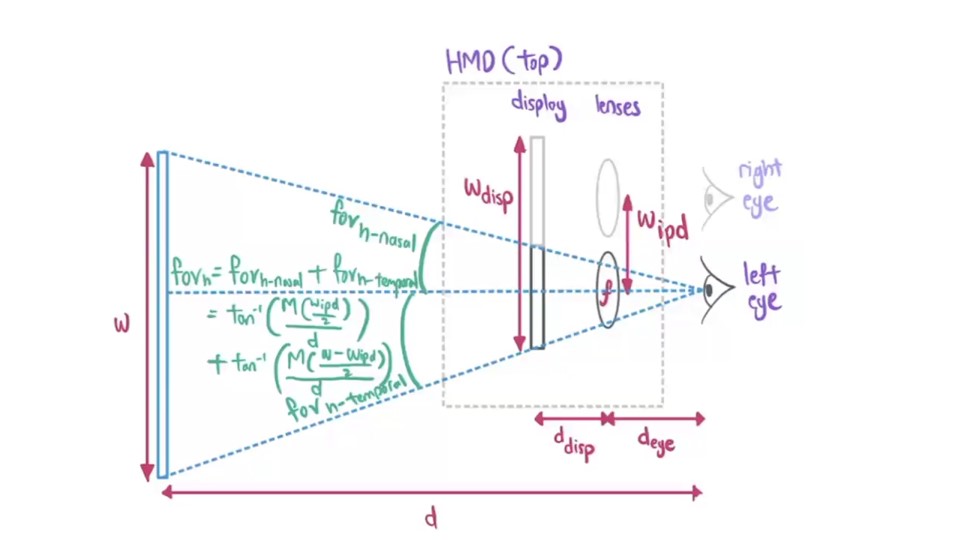 HMD (top)
display lenses
right
eye
W_disp
W_ipd
fov_h-nasal
fov_h = fov_h-nasal + fov_h-temporal
= tan⁻¹ (M(w_ipd/2)/d)
+ tan⁻¹ (M(w-w_ipd/2)/d)
fov h-temporal
left
eye
f
w
d_disp
d_eye
d